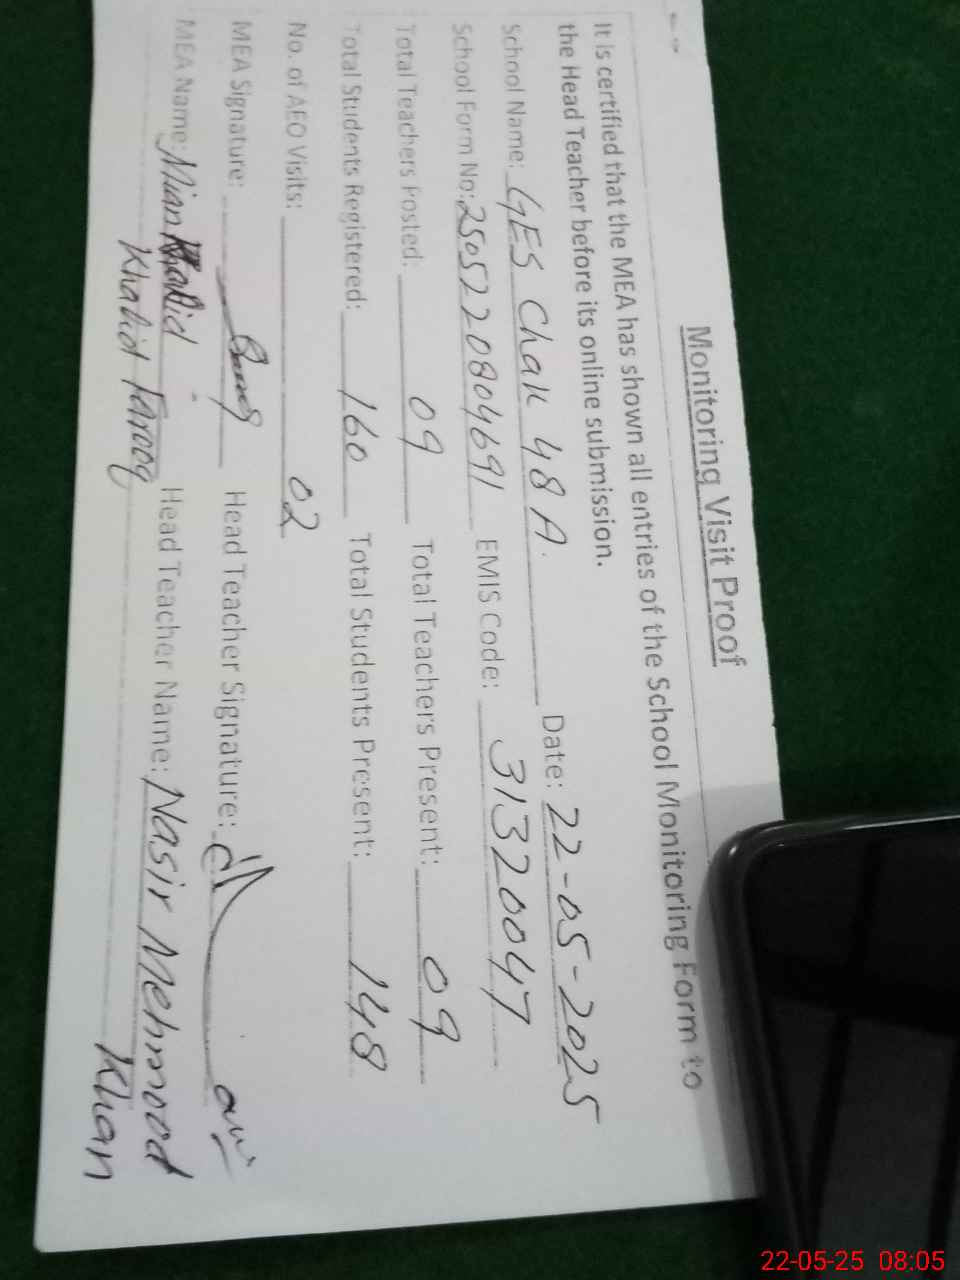 Monitoring Visit Proof
It is certified that the MEA has shown all entries of the School Monitoring Form to
the Head Teacher before its online submission.
School Name: GES Chak 48 A. Date: 22-05-2025
School Form No: 2505220804691 EMIS Code: 31320047
Total Teachers Posted: 09 Total Teachers Present: 09
Total Students Registered: 160 Total Students Present: 148
No. of AEO Visits: 02
MEA Signature: Head Teacher Signature:
MEA Name: Mian Khalid Head Teacher Name: Nasir Mehmood
Khalid Farooq Khan
22-05-25 08:05